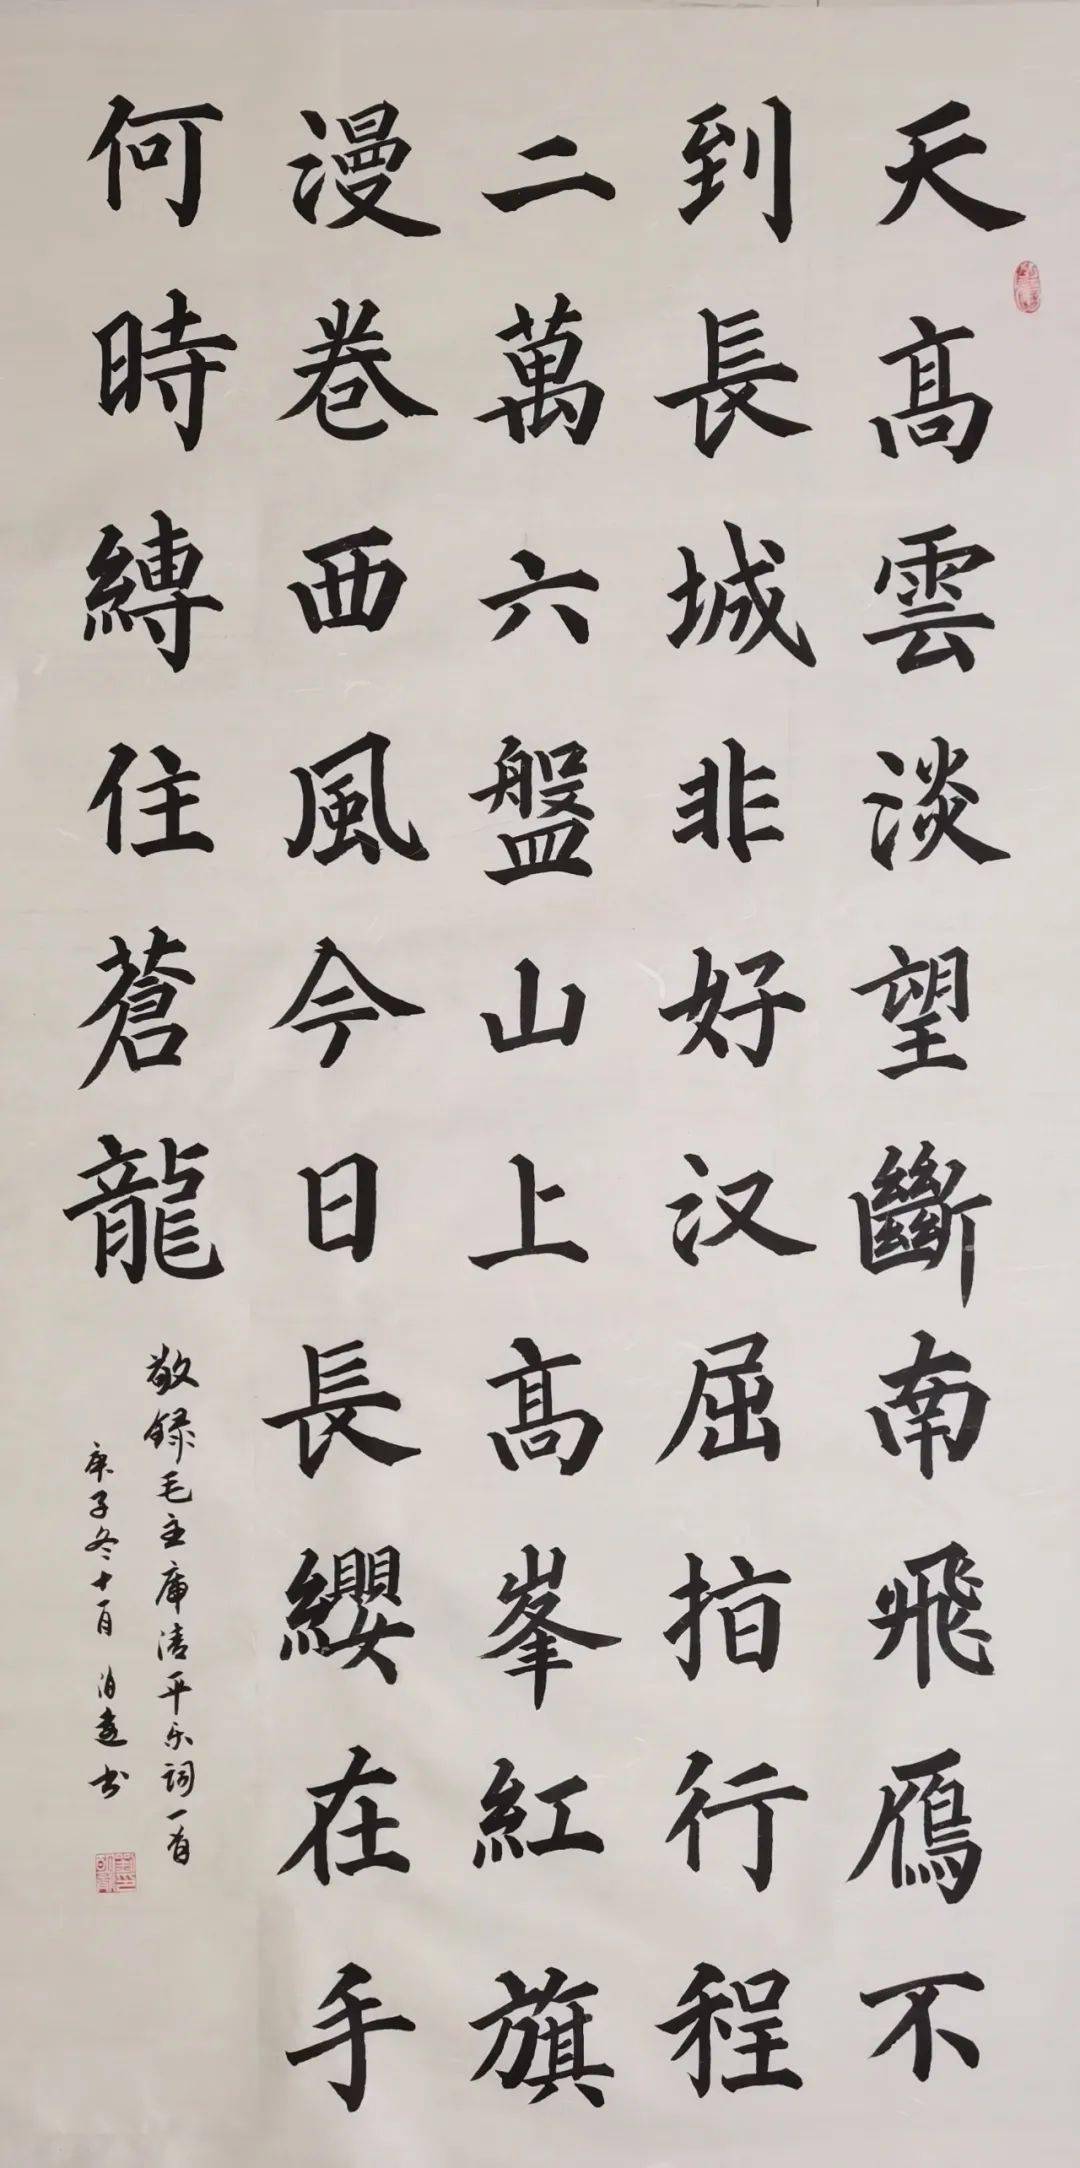 天髙雲淡望斷南飛鴈不
到長城非好汉屈指行程
二萬六盤山上髙峯紅旗
漫卷西風今日長纓在手
何時縛住蒼龍
敬録毛主席清平乐詞一首
庚子冬十月 书